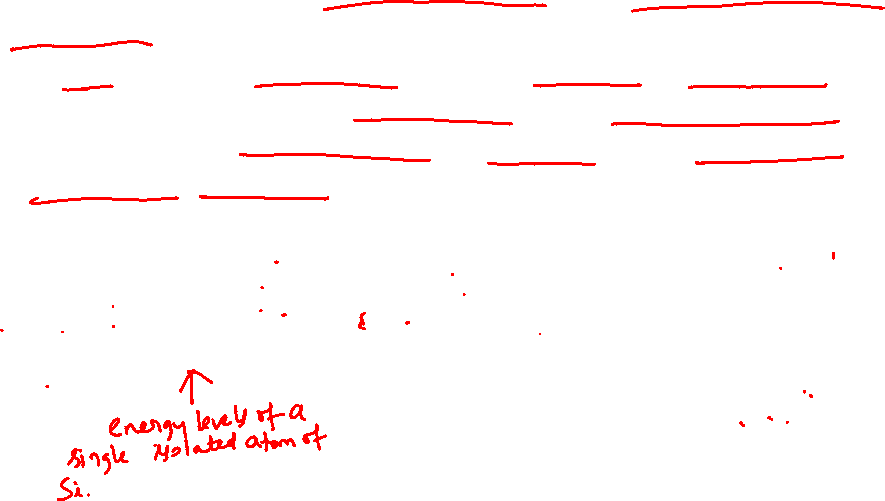 energy levels of a
single isolated atom of
Si.